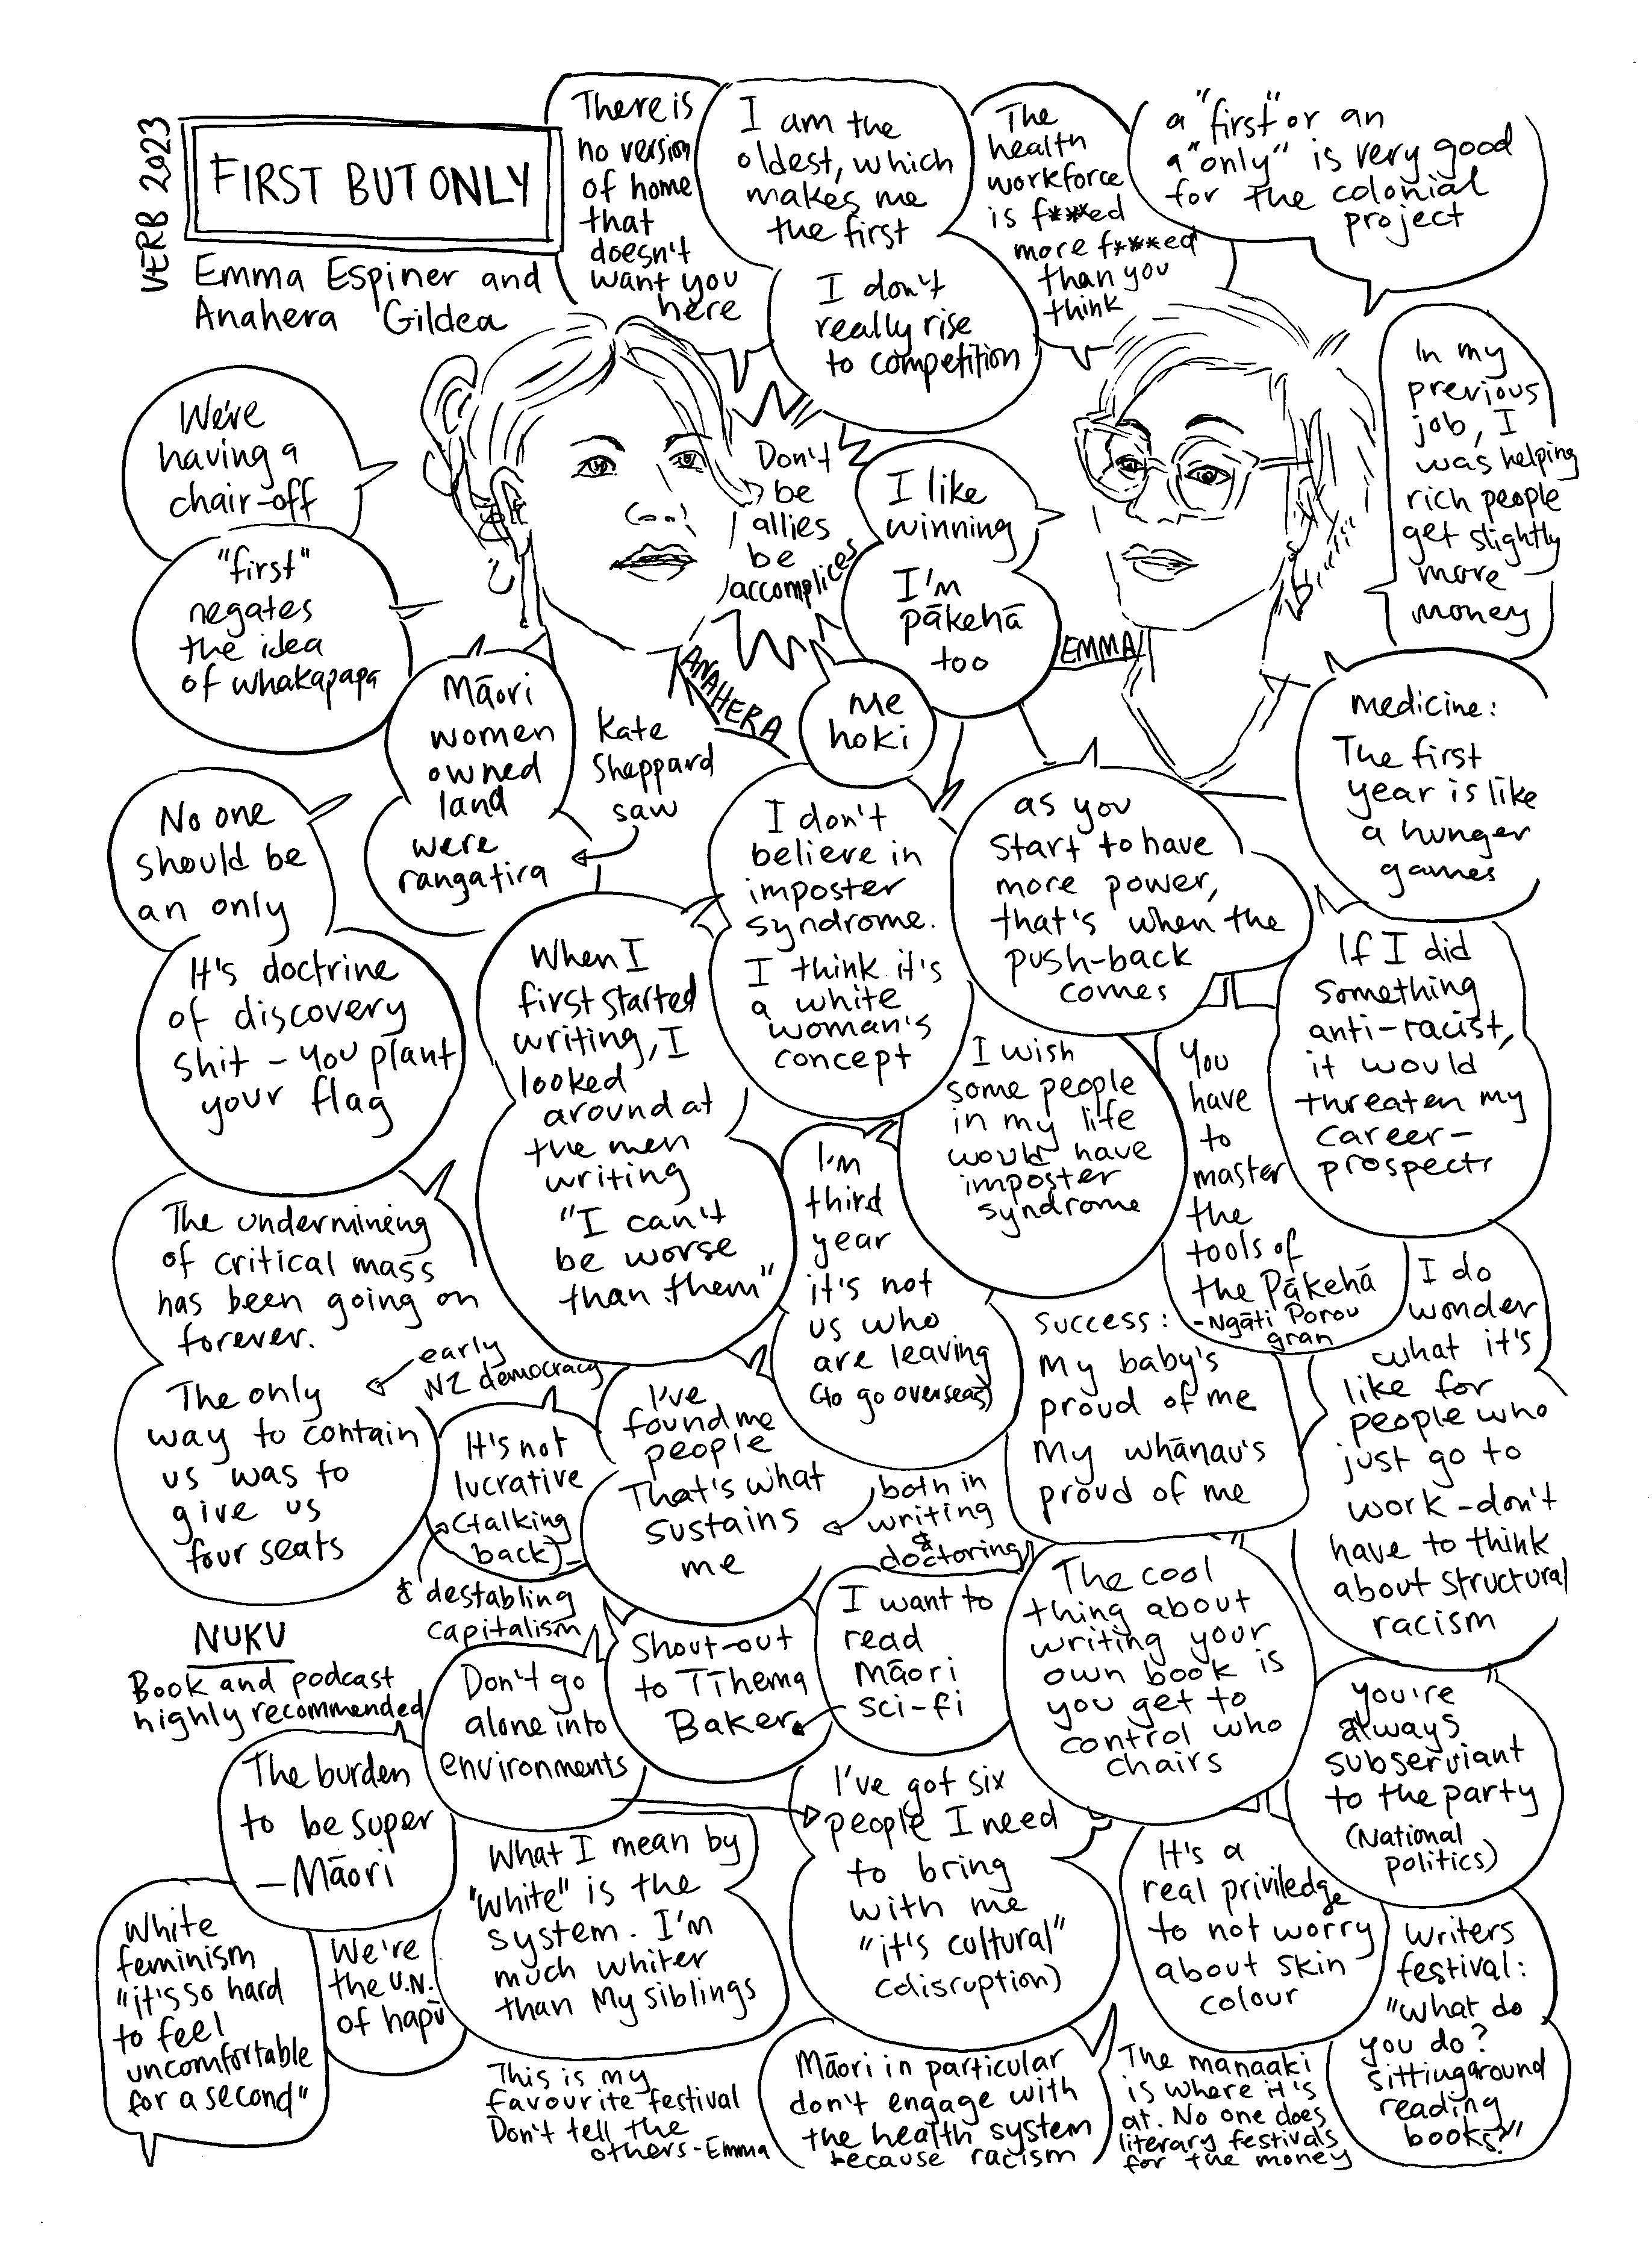 VERB 2023
FIRST BUT ONLY
Emma Espiner and
Anahera Gildea
There is
no version
of home
that
doesn't
want you
here
I am the
oldest, which
makes me
the first
I don't
really rise
to competition
The
health
workforce
is f***ed
more f***ed
than you
think
a "first" or an
a "only" is very good
for the colonial
project
We're
having a
chair-off
"first"
negates
the idea
of whakapapa
Don't
be
allies
be
accomplices
I like
winning
I'm
pākehā
too
me
hoki
ANAHERA
EMMA
In my
previous
job, I
was helping
rich people
get slightly
more
money
Māori
women
owned
land
were
rangatira
Kate
Sheppard
saw
medicine:
The first
year is like
a hunger
games
No one
should be
an only
It's doctrine
of discovery
shit - you plant
your flag
When I
first started
writing, I
looked
around at
the men
writing
"I can't
be worse
than them"
I don't
believe in
imposter
syndrome.
I think it's
a white
woman's
concept
as you
start to have
more power,
that's when the
push-back
comes
I wish
some people
in my life
would have
imposter
syndrome
You
have
to
master
the
tools of
the Pākehā
-Ngāti Porou
gran
If I did
something
anti-racist,
it would
threaten my
career-
prospects
The undermining
of critical mass
has been going on
forever.
early
NZ democracy
The only
way to contain
us was to
give us
four seats
I'm
third
year
it's not
us who
are leaving
(to go overseas)
success:
my baby's
proud of me
my whānau's
proud of me
I do
wonder
what it's
like for
people who
just go to
work - don't
have to think
about structural
racism
It's not
lucrative
(talking
back)
& destabling
capitalism
I've
found me
people
That's what
sustains
me
both in
writing
&
doctoring
NUKU
Book and podcast
highly recommended
Don't go
alone into
environments
Shout-out
to Tīhema
Baker
I want to
read
māori
sci-fi
The cool
thing about
writing your
own book is
you get to
control who
chairs
you're
always
subserviant
to the party
(National
politics)
The burden
to be super
-Māori
What I mean by
"white" is the
system. I'm
much whiter
than my siblings
I've got six
people I need
to bring
with me
"it's cultural"
(disruption)
It's a
real priviledge
to not worry
about skin
colour
White
feminism
"it's so hard
to feel
uncomfortable
for a second"
We're
the U.N.
of hapū
This is my
favourite festival
Don't tell the
others - Emma
Māori in particular
don't engage with
the health system
because racism
The manaaki
is where it's
at. No one does
literary festivals
for the money
writers
festival:
"what do
you do?
sitting around
reading
books?"